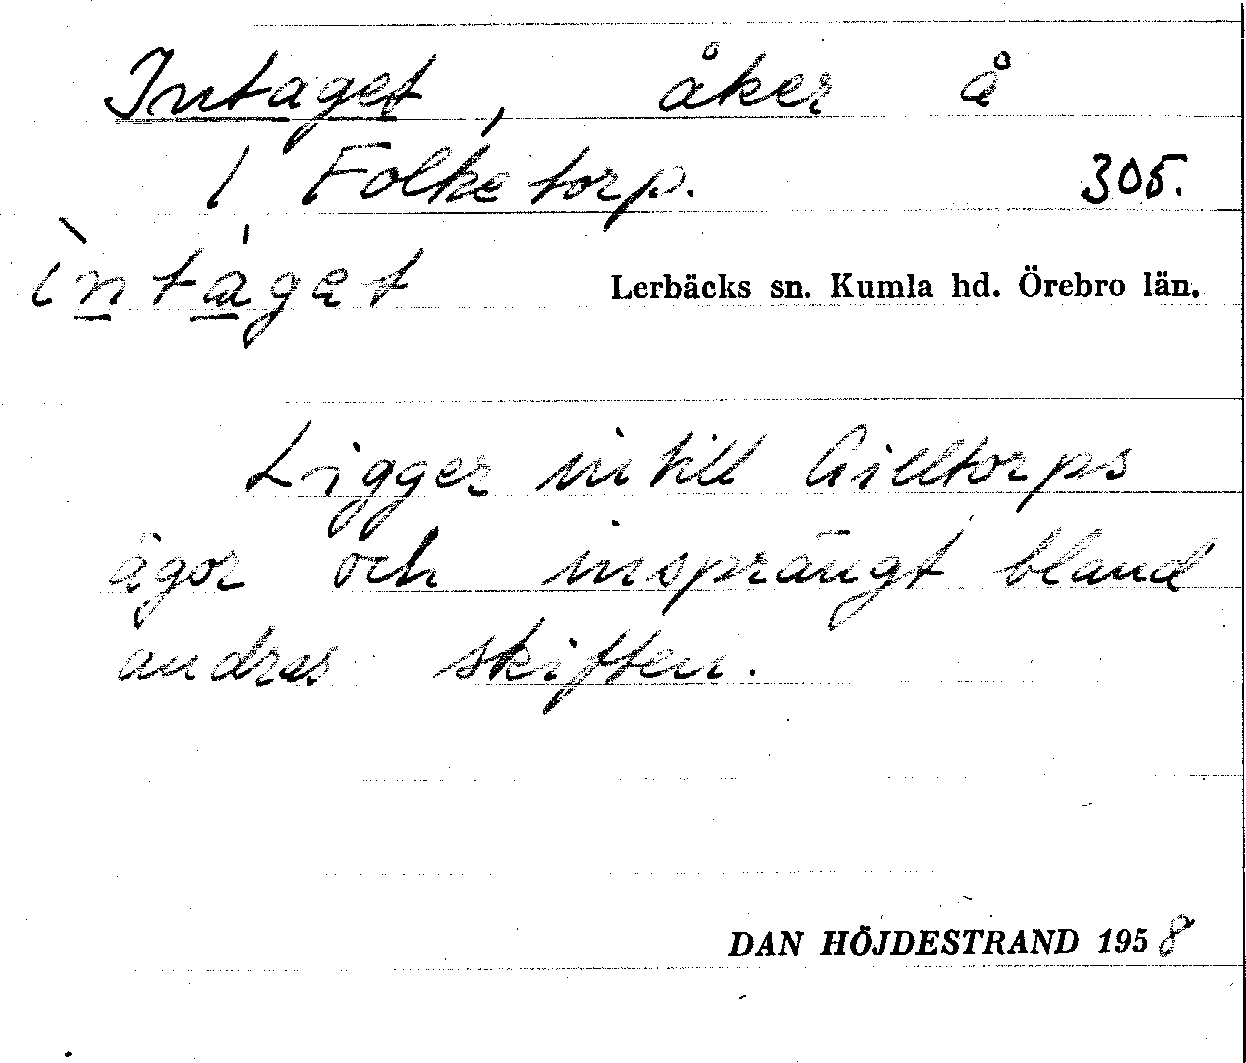 Intaget, åker å
1 Folketorp. 305.
ìntáget
Lerbäcks sn. Kumla hd. Örebro län.
Ligger intill Gilltorps
ägor och insprängt bland
andras skiften.
DAN HÖJDESTRAND 1958